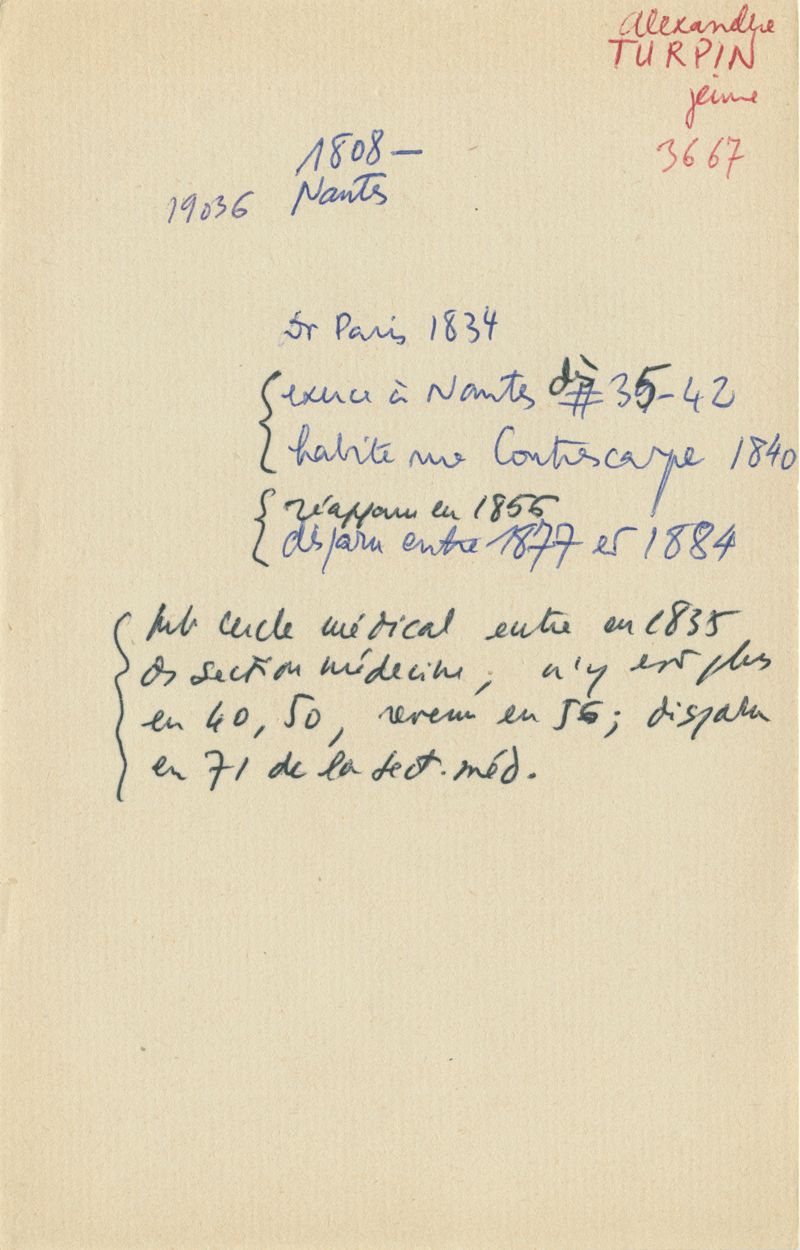 Alexandre
TURPIN
jeune
3667
1808 —
19036 Nantes
Dr Paris 1834
exerce à Nantes dès 35-42
habite rue Contrescarpe 1840
réapparu en 1856
disparu entre 1877 et 1884
cercle médical entre en 1835
ds section médecine, n'y est plus
en 40, 50, revenu en 56; disparu
en 71 de la sect. méd.